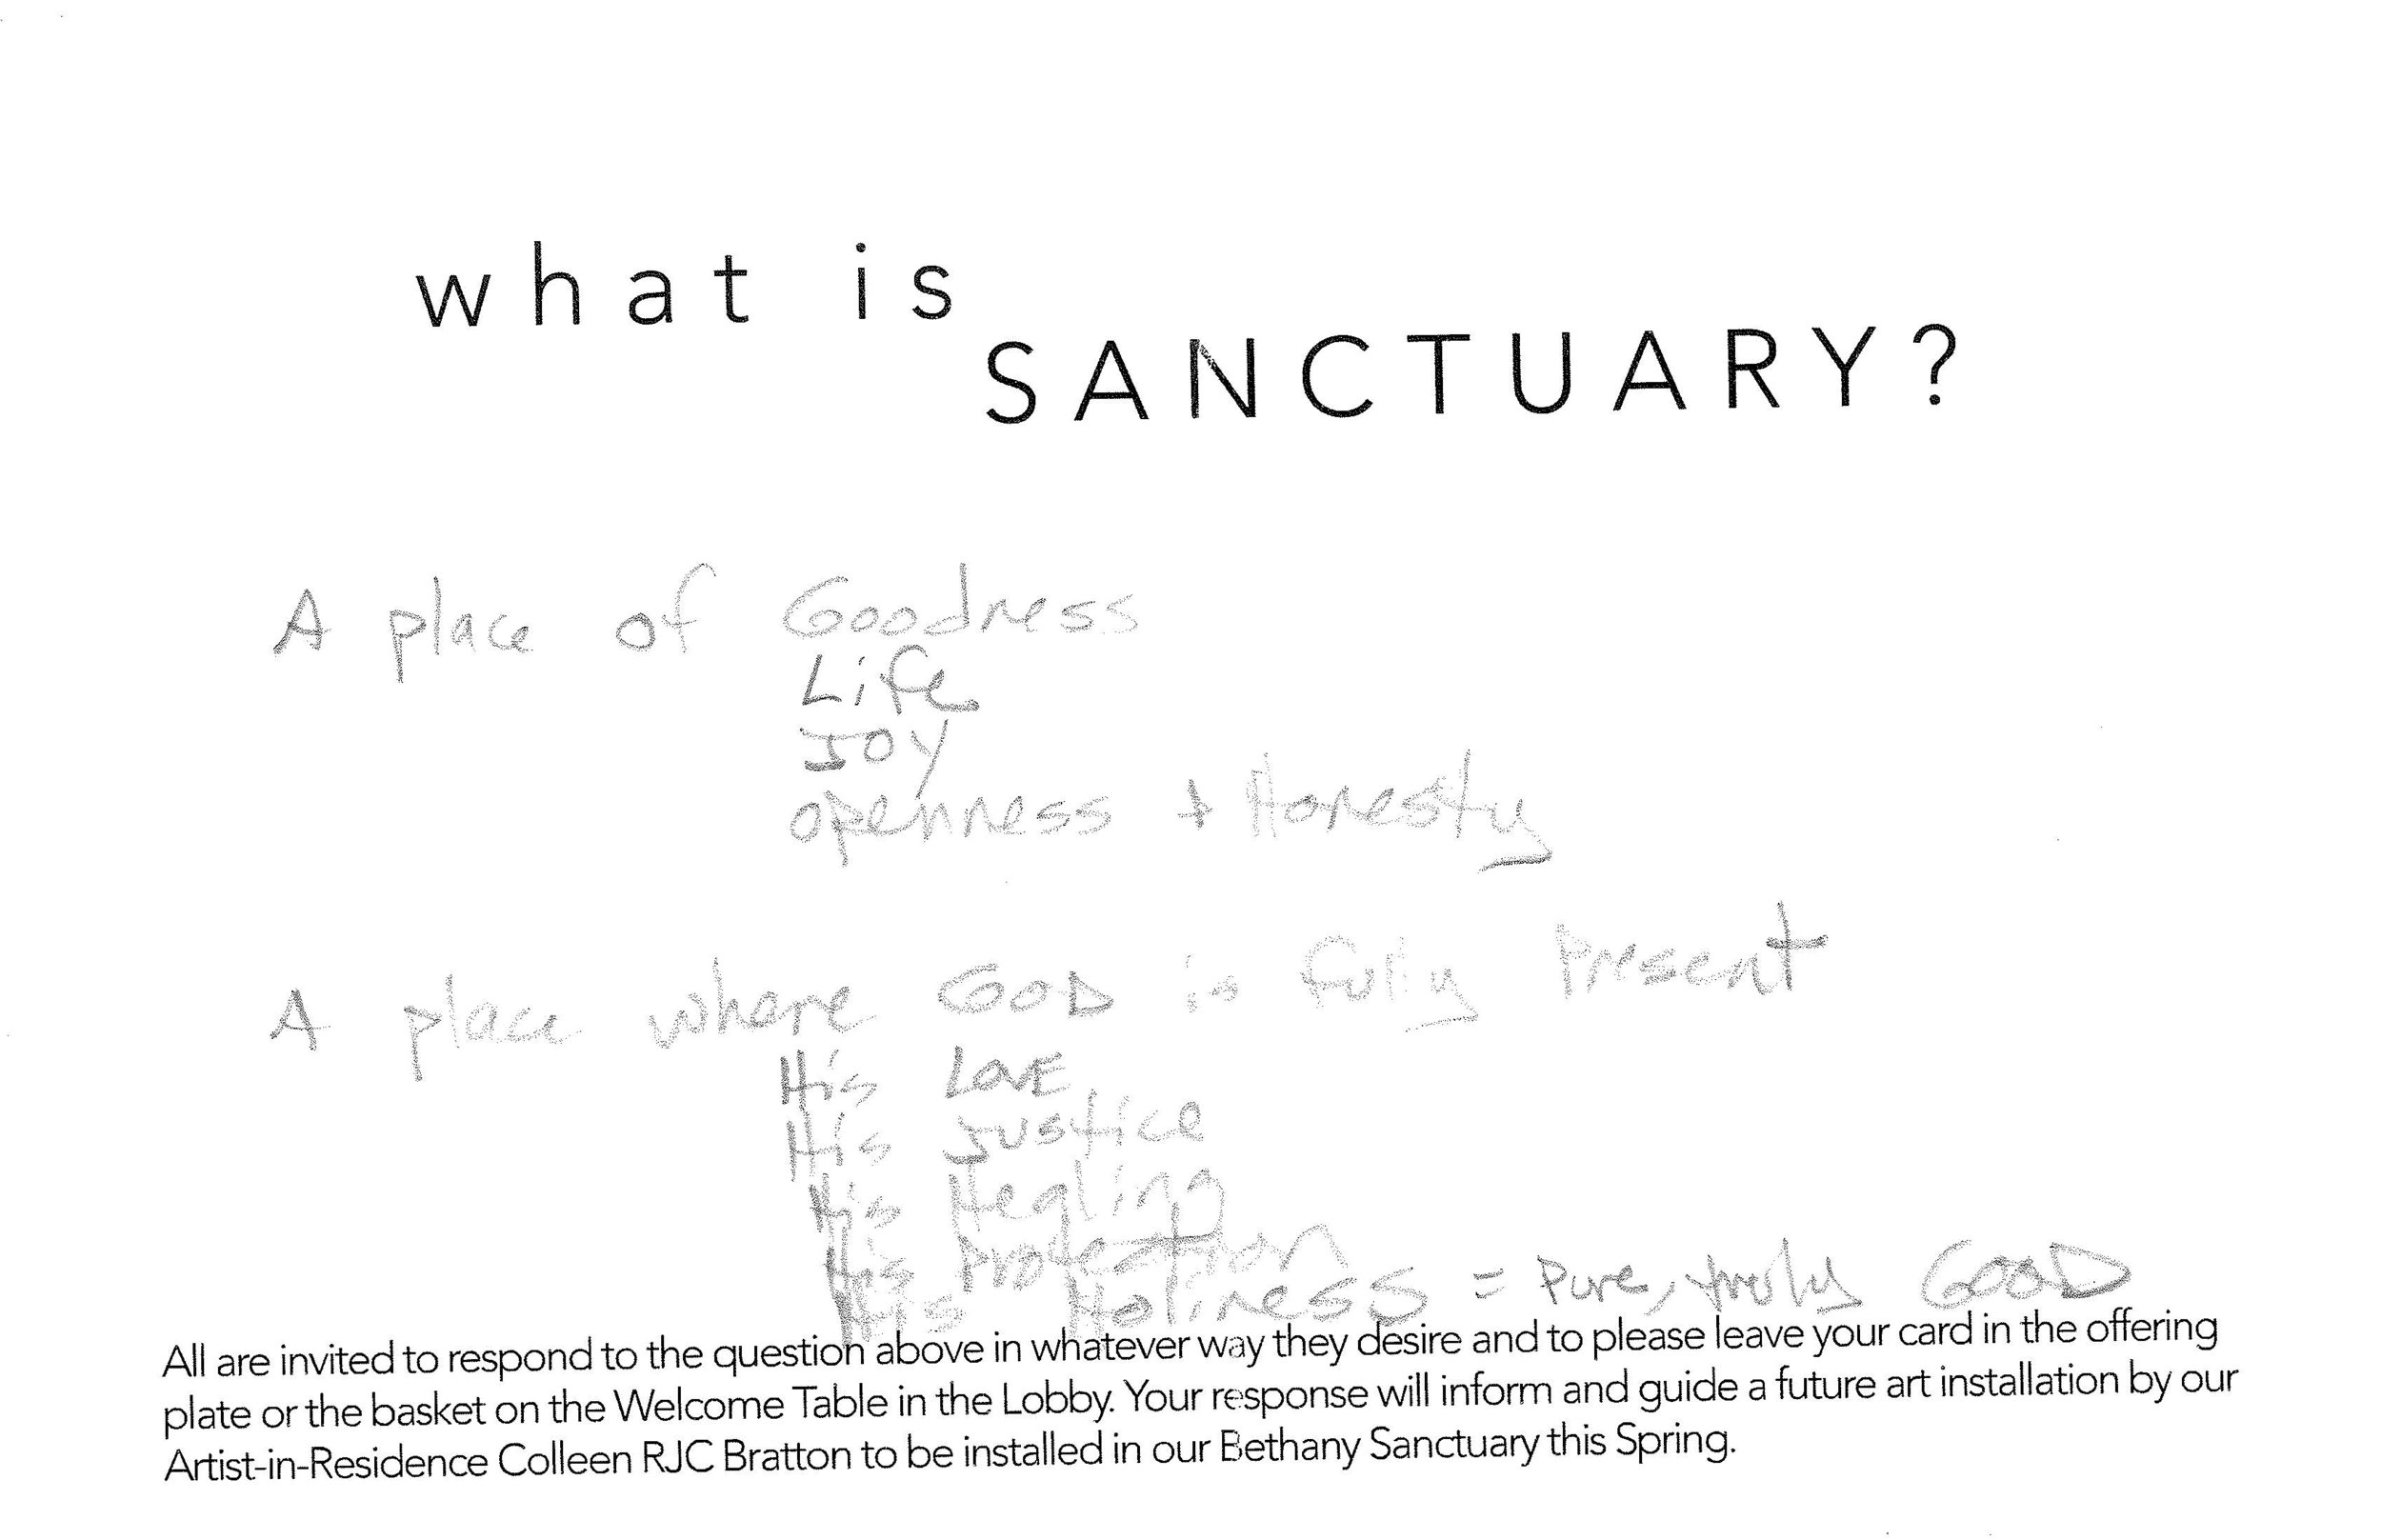 what is
SANCTUARY?
A place of Goodness
Life
Joy
openness + Honesty
A place where GOD is fully Present
His LOVE
His Justice
His Healing
His Protection
His Holiness = Pure, truly GOOD
All are invited to respond to the question above in whatever way they desire and to please leave your card in the offering
plate or the basket on the Welcome Table in the Lobby. Your response will inform and guide a future art installation by our
Artist-in-Residence Colleen RJC Bratton to be installed in our Bethany Sanctuary this Spring.